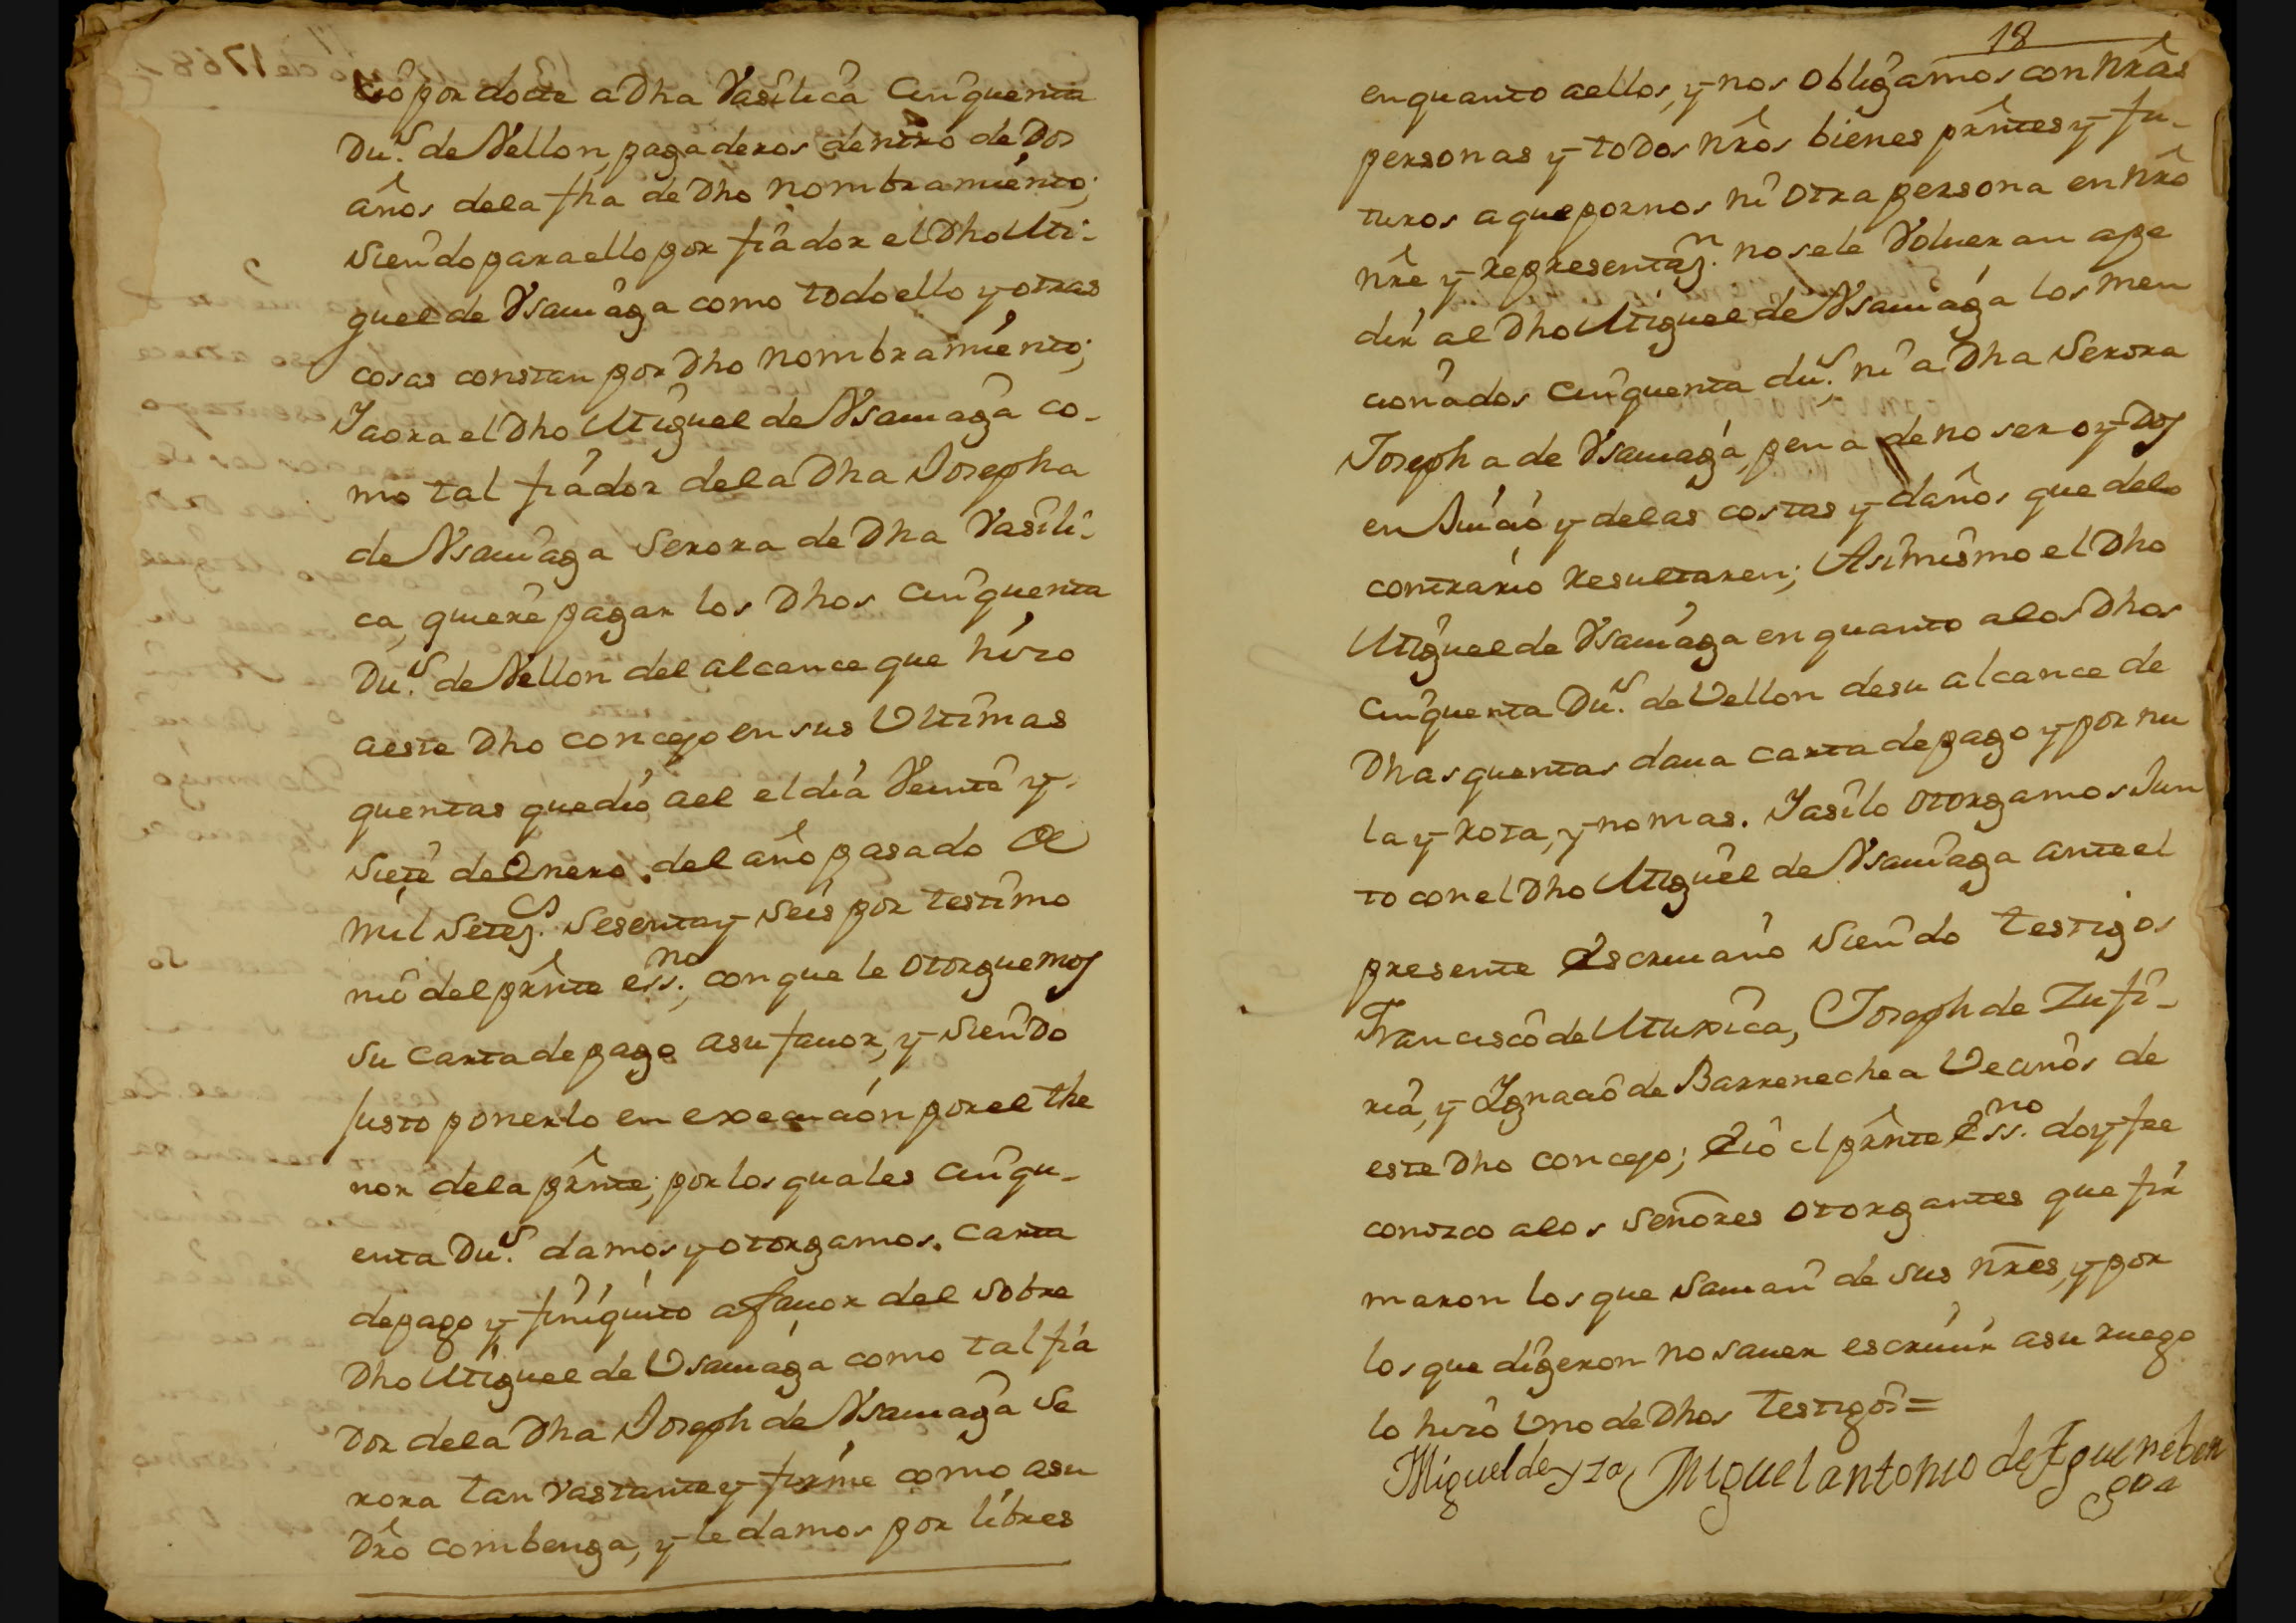 cio por docte a Dha Vasilica Cinquenta
Du.s de Vellon, pagaderos dentro de Dos
años dela fha de Dho nombramiento;
Siendo para ello por fiador el Dho Mi-
guel de Vsauiaga como todo ello y otras
cosas constan por Dho nombramiento;
Y aora el Dho Miguel de Vsauiaga co-
mo tal fiador dela Dha Josepha
de Vsauiaga Serora de Dha Vasili-
ca, quiere pagar los Dhos Cinquenta
Du.s de Vellon del alcance que hizo
a este Dho concejo en sus Vltimas
quentas que dio ael el dia Veinte y
Siete de Enero del año pasado de
mil Setez.s Sesenta y Seis por testimo
nio del prnte ess.no, con que le otorguemos
su carta de pago asu fauor, y Siendo
Justo ponerlo en execucion por el the
nor dela prnte; por los quales cinqu-
enta Du.s damos y otorgamos carta
de pago y finiquito a fauor del Sobre
Dho Miguel de Vsauiaga como tal fia
Dor dela Dha Joseph de Vsauiaga Se
rora tan vastante y firme como asu
Dro combenga, y le damos por libres
18
en quanto a ellos, y nos obligamos con nras
personas y todos nros bienes prntes y fu-
turos a que por nos ni otra persona en nro
nre y representaz.n no se le Volueran a pe
dir al Dho Miguel de Vsauiaga los men
cionados Cinquenta du.s ni a Dha Serora
Josepha de Vsauiaga, pena de no ser oydos
en Juicio y delas costas y daños que delo
contrario resultaren; Asimismo el Dho
Miguel de Vsauiaga en quanto a los Dhos
Cinquenta Du.s de Vellon de su alcance de
Dhas quentas daua carta de pago y por nu
la y rota, y no mas. Y asilo otorgamos Jun
to con el Dho Miguel de Vsauiaga ante el
presente Escriuano Siendo testigos
Francisco de Muxica, Joseph de Zufi-
ria, y Ignacio de Barrenechea Vecinos de
este Dho concejo; E io el prnte Ess.no doy fee
conozco a los Señores otorgantes que fir
maron los que sauian de sus nres, y por
los que digeron no sauer escriuir a su ruego
lo hizo Vno de Dhos testigos=
Miguel de yza Miguel antonio de Eguenben
goa